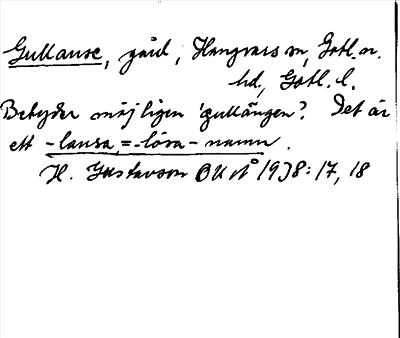 Gullause, gård, Hangvars sn, Gotl. n.
hd., Gotl. l.
Betyder möjligen 'gullängen'? Det är
ett -lausa, = -lösa-namn.
H. Gustavson OUÅ 1938:17, 18